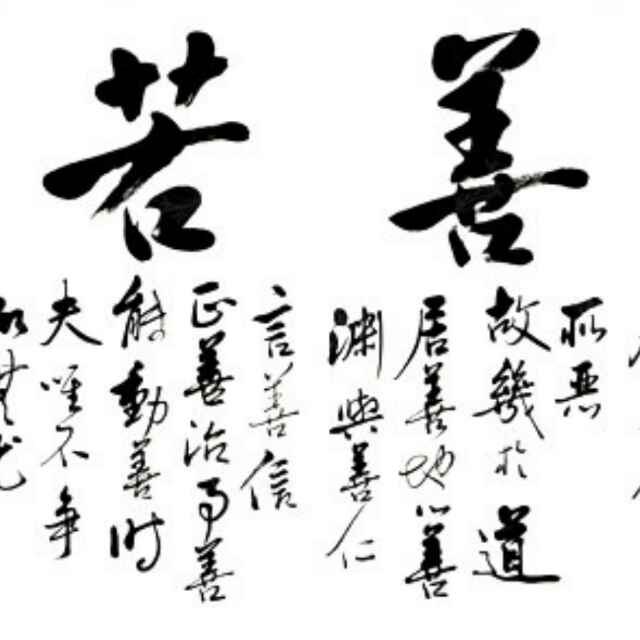 善若
所惡
故幾於道
居善地心善
淵與善仁
言善信
正善治事善
能動善時
夫唯不争
故無尤